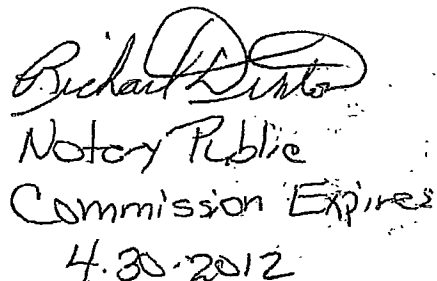 Richard
Notary Public
Commission Expires
4.30.2012